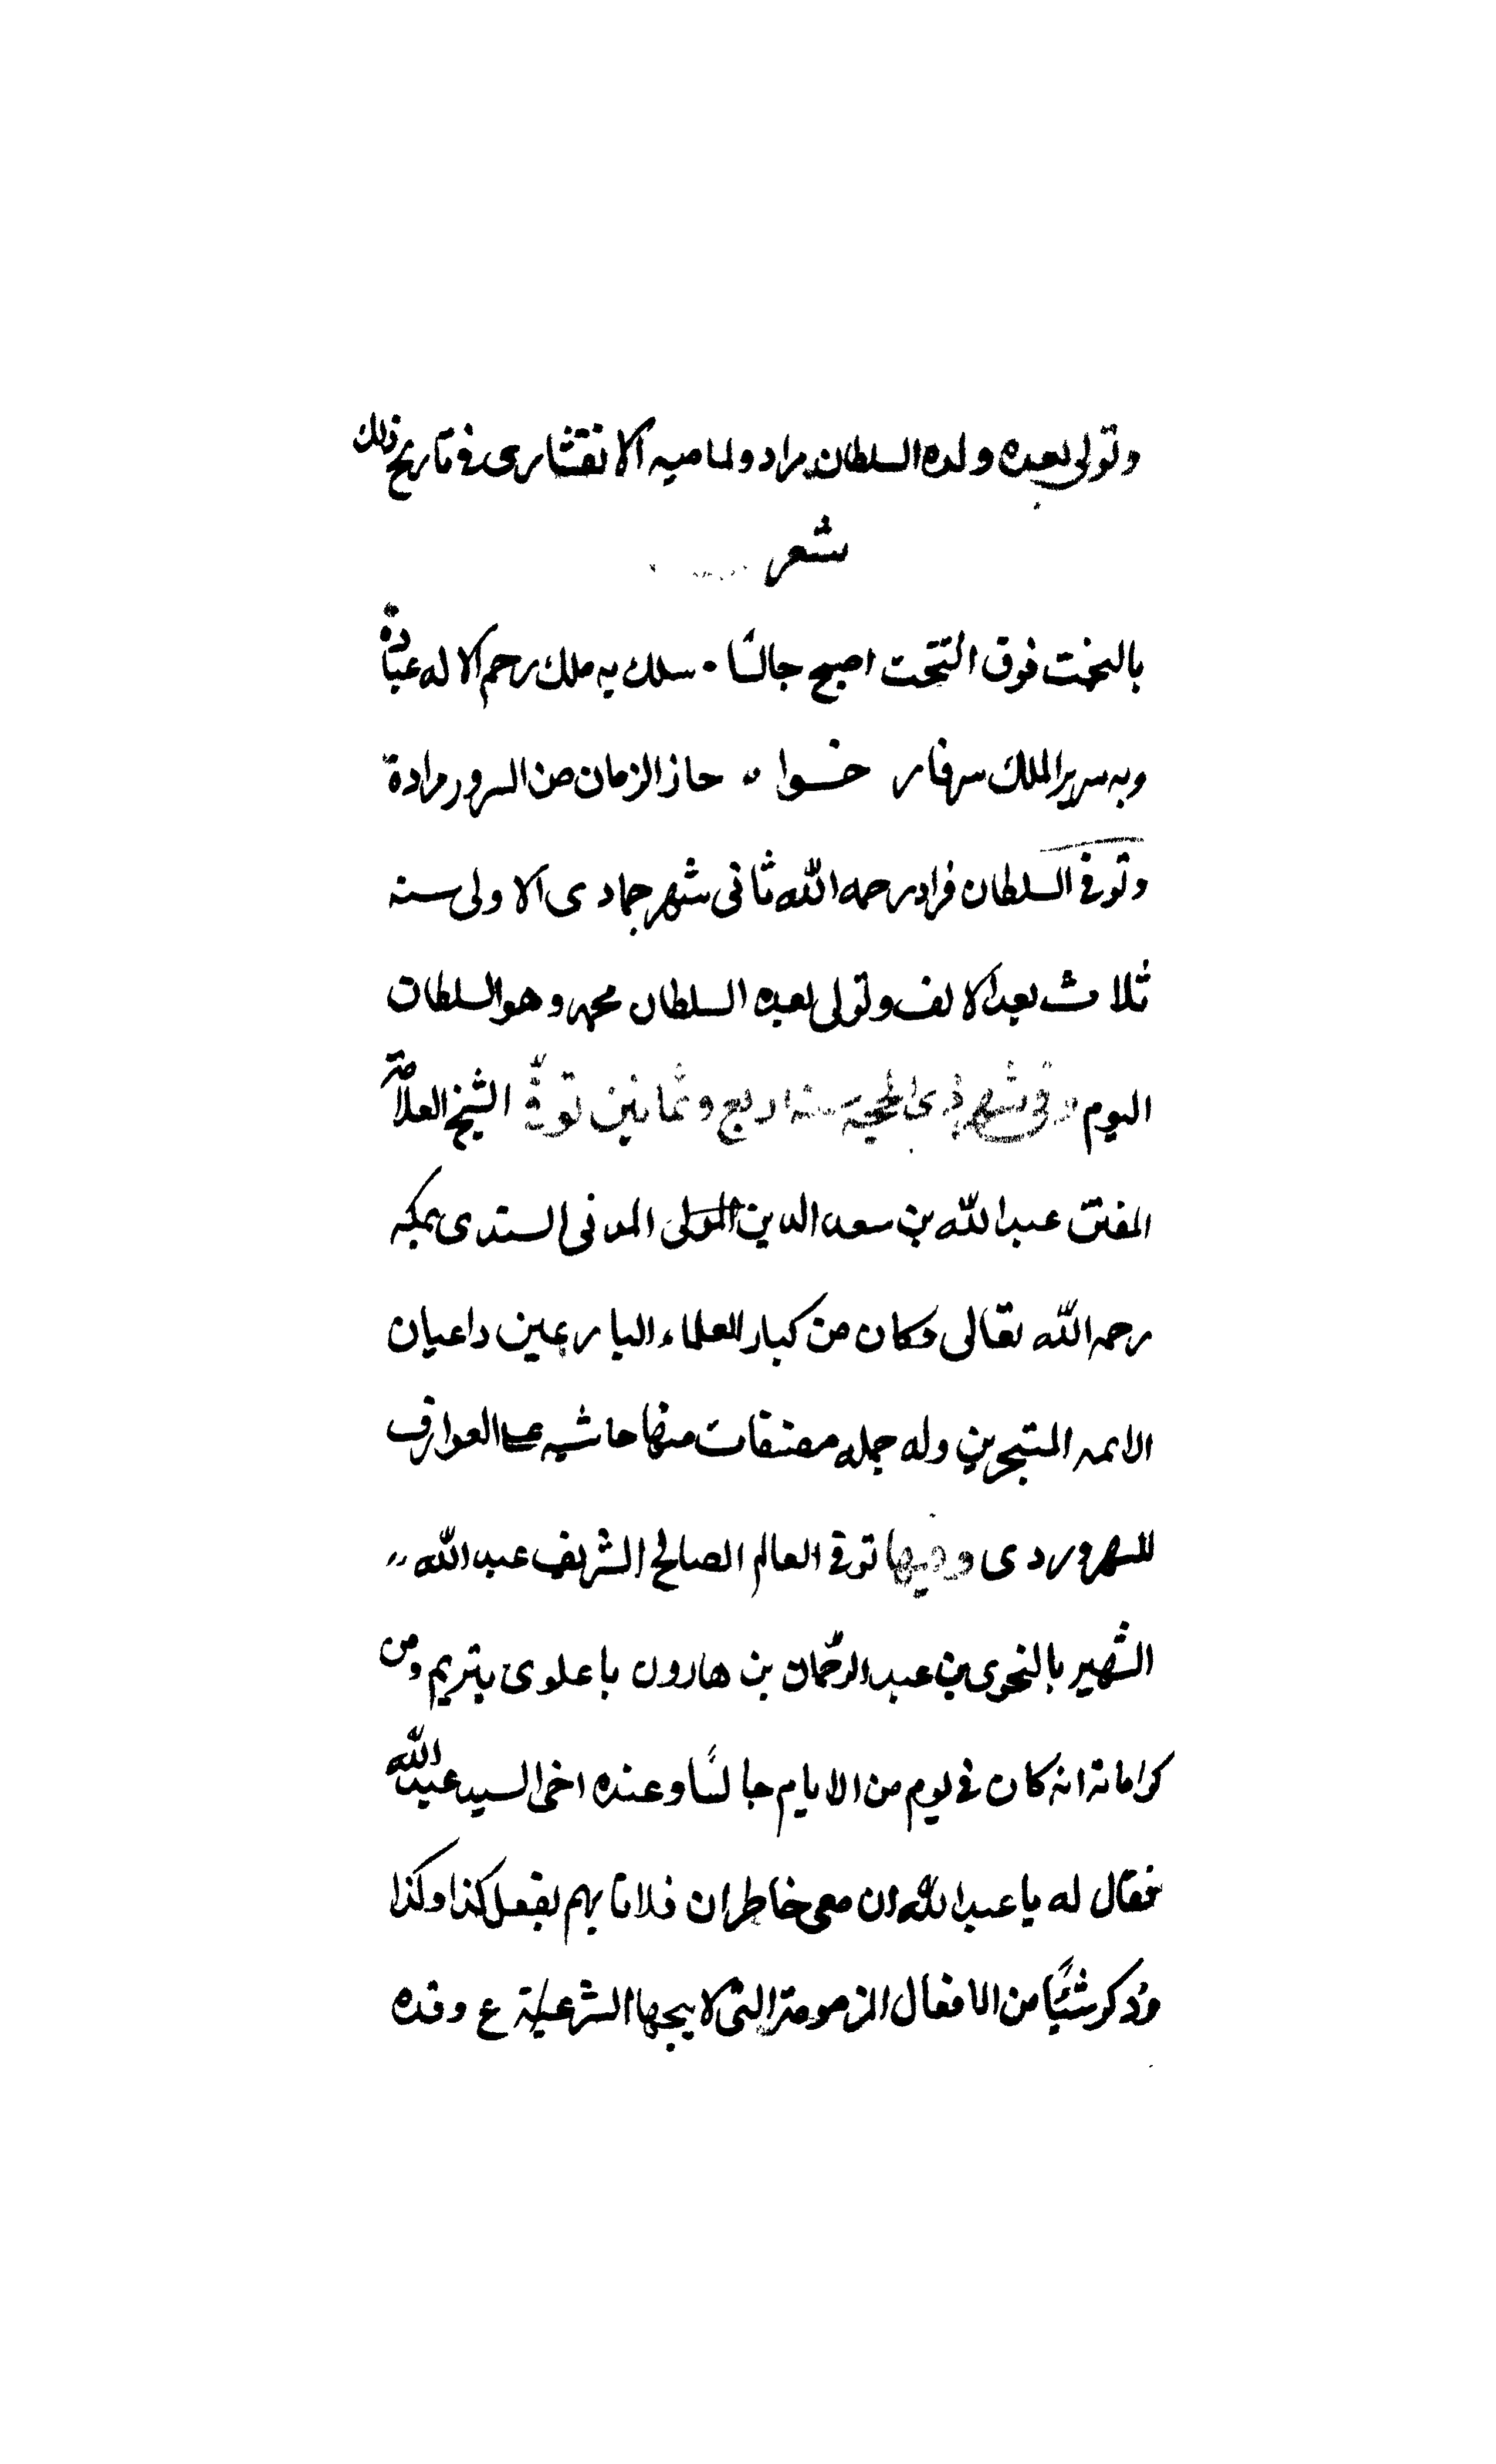 وتولى بعده ولده السلطان مراد ولماميه الانقشارى فى تاريخ ذلك
شعر
بالبخت فوق التخت اصبح جالسًا • سلك به ملك رحم الاله عباده
وبه سرير الملك سرفار خسوا ،، حاز الزمان من السرور مرادة
وتوفي السلطان مراد رحمه الله ثانى شهر جمادى الاولى سنه
ثلاث بعد الالف وتولى بعده السلطان محمد وهو السلطان
اليوم وفى شهر ذى الحجية سنة اربع وثمانين توفيّ الشيخ العلامة
المفتى عبدالله بن سعد الدين المدنى السندى بمكه
رحمه الله تعالى وكان من كبار العلماء البارعين واعيان
الايمه المتبحرين وله جمله مصنفات منها حاشيه على العوارف
للسهروردى وفيها توفى العالم الصالح الشريف عبدالله ،،
الشهير بالنحوى بن عبدالرحمان بن هارون باعلوى بتريم ومن
كراماته انه كان فى يوم من الايام جالسًا وعنده اخى السيد عبدالله
فقال له يا عبدالله ان معى خاطران فلانا بهم بفعل كذا وكذا
وذكر شيئًا من الافعال المزمومة التى لا يبحها الشرعية ع وقده